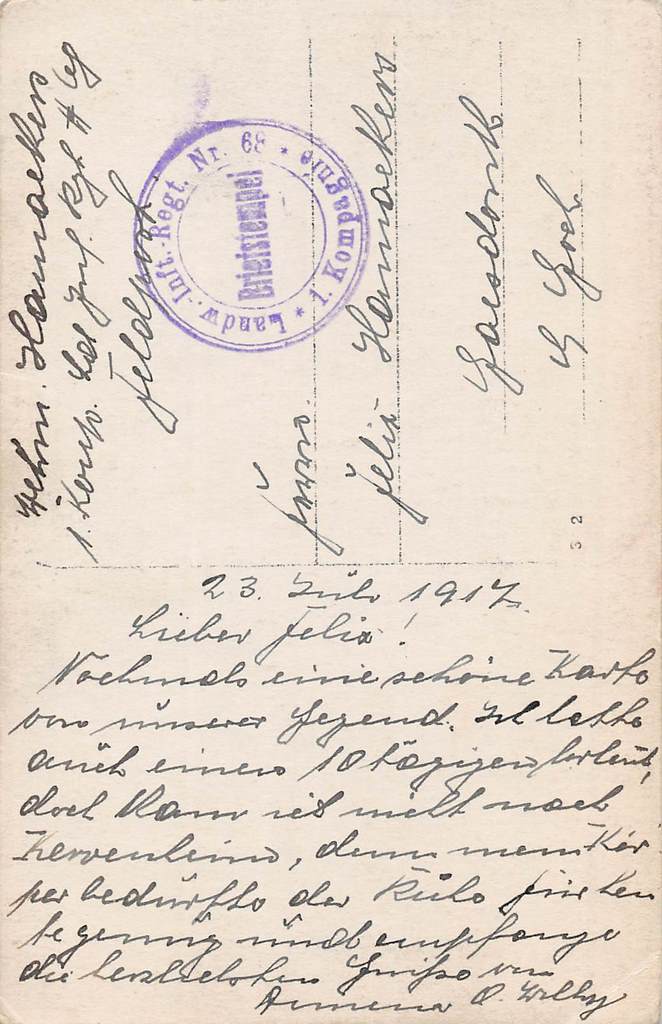 Wilhm. Hamaekers
1. Komp. Ld. Inf. Rgt # 68
Feldpost.
Landw.-Inft.-Regt. Nr. 68 * 1. Kompagnie *
Briefstempel
Herrn.
Felix Hamaekers
Gaesdonk
b Goch.
32
23. Juli 1917.
Lieber Felix!
Nochmals eine schöne Karte
von unserer Gegend. Ich hatte
auch einen 10 tägigen Urlaub,
doch kam ich nicht nach
Kervenheim, denn mein Kör-
per bedürfte der Ruhe. Für heu
te genug und empfange
die herzlichsten Grüße von
Deinem O. Willy